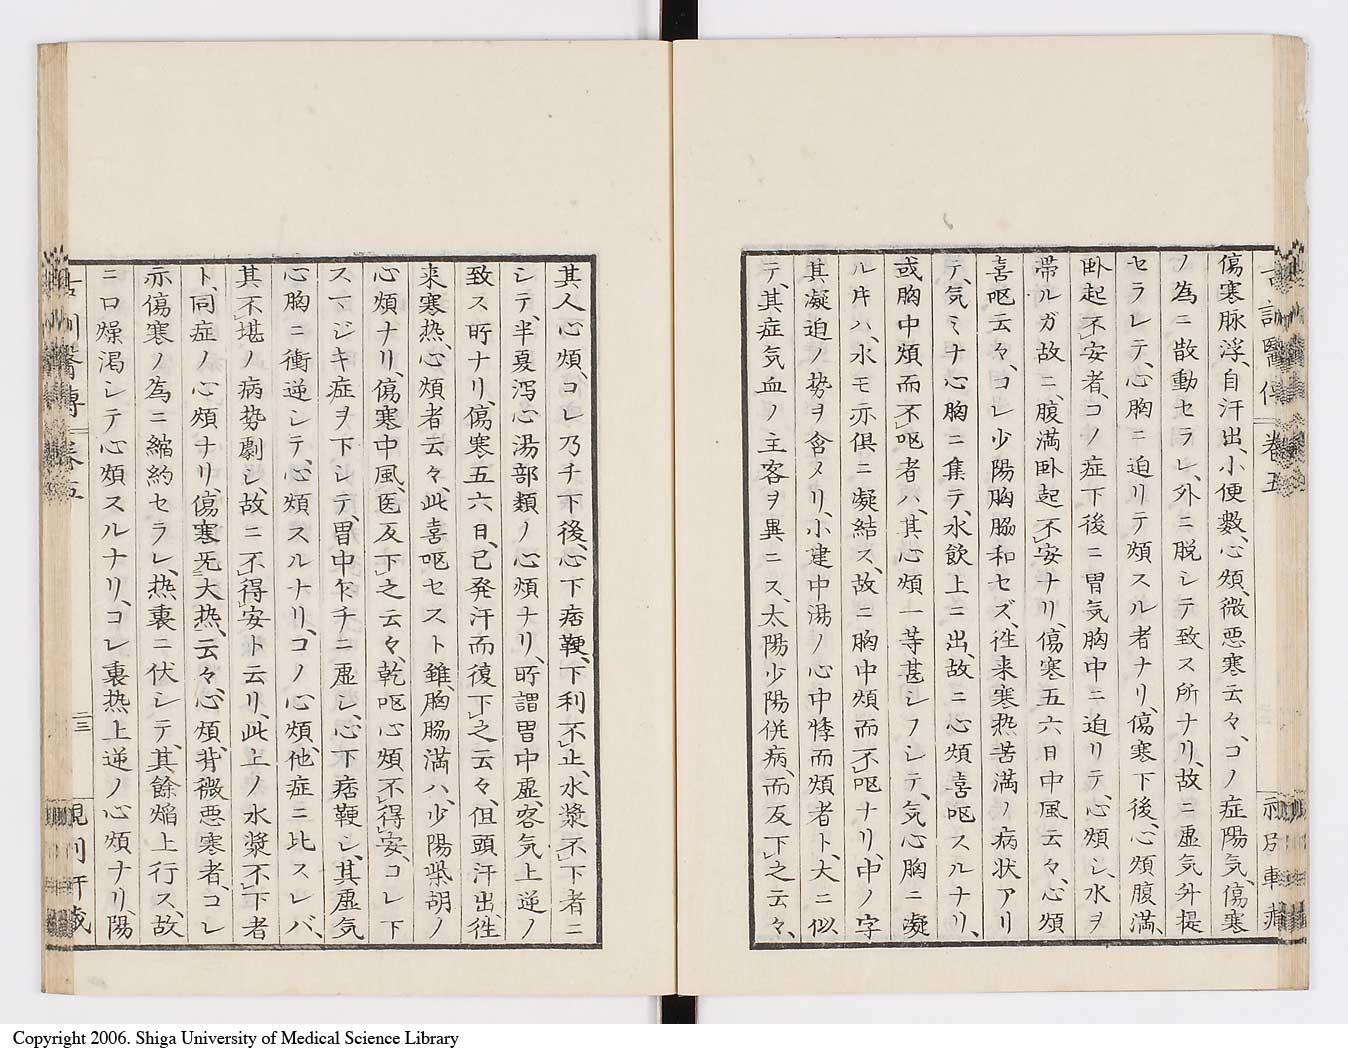 傷寒脉浮、自汗出、小便數、心煩、微悪寒云々、コノ症陽気、傷寒
ノ為ニ散動セラレ、外ニ脱シテ致ス所ナリ、故ニ虚気舛提
セラレテ、心胸ニ迫リテ煩スル者ナリ、傷寒下後、心煩腹満、
卧起不安者、コノ症下後ニ胃気胸中ニ迫リテ、心煩シ、水ヲ
帯ルガ故ニ、腹満卧起不安ナリ、傷寒五六日中風云々、心煩
喜呕云々、コレ少陽胸脇和セズ、徃来寒热苦満ノ病状アリ
テ、気ミナ心胸ニ集テ、水飲上ニ出、故ニ心煩喜呕スルナリ、
或胸中煩而不呕者ハ、其心煩一等甚シフシテ、気心胸ニ凝
ル片ハ、水モ亦俱ニ凝結ス、故ニ胸中煩而不呕ナリ、中ノ字
其凝迫ノ势ヲ含メリ、小建中湯ノ心中悸而煩者ト、大ニ似
テ、其症気血ノ主客ヲ異ニス、太陽少陽併病、而反下之云々、
其人心煩、コレ乃チ下後、心下痞鞕、下利不止、水漿不下者ニ
シテ、半夏泻心湯部類ノ心煩ナリ、所謂胃中虚、客気上逆ノ
致ス所ナリ、傷寒五六日、已発汗而復下之云々、但頭汗出、徃
来寒热、心煩者云々、此喜呕セスト雖、胸脇満ハ、少陽柴胡ノ
心煩ナリ、傷寒中風、医反下之云々、乾呕心煩不得安、コレ下
スマジキ症ヲ下シテ、胃中乍チニ虚シ、心下痞鞕シ、其虚気
心胸ニ衝逆シテ、心煩スルナリ、コノ心煩、他症ニ比スレバ、
其不堪ノ病势劇シ、故ニ不得安ト云リ、此上ノ水漿不下者
ト、同症ノ心煩ナリ、傷寒旡大热、云々、心煩、背微悪寒者、コレ
亦傷寒ノ為ニ縮約セラレ、热裏ニ伏シテ、其餘焔上行ス、故
ニ口燥渇シテ心煩スルナリ、コレ裏热上逆ノ心煩ナリ、陽
卷五
二三